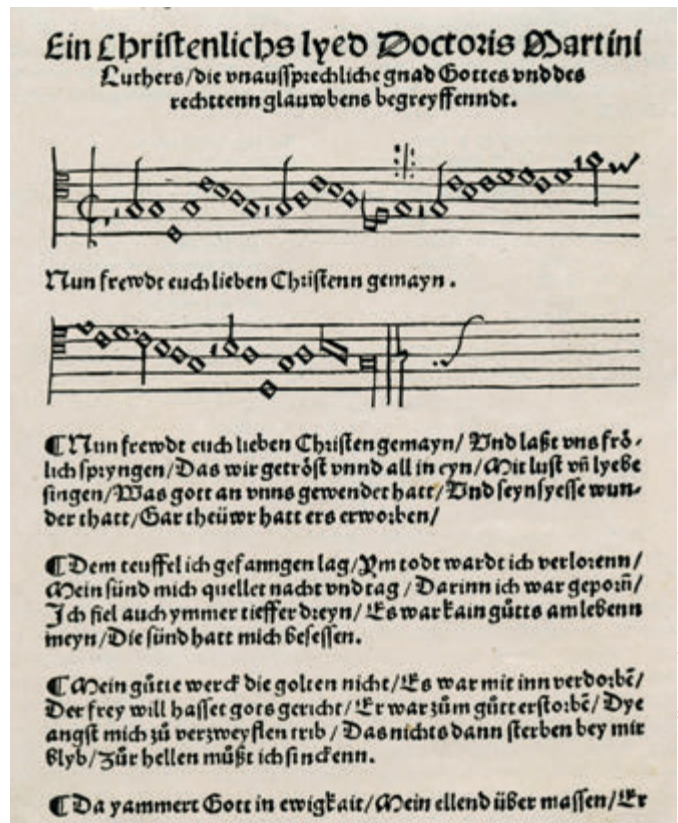 Ein Christenlichs lyed Doctoris Martini
Luthers/die vnaussprechliche gnad Gottes vnd des
rechttenn glauwbens begreyffenndt.
Nun frewdt euch lieben Christenn gemayn.
Nun frewdt euch lieben Christen gemayn/ Vnd laßt vns frö-
lich spryngen/Das wir getröst vnnd all in eyn/Mit lust vñ lyebe
singen/Was gott an vnns gewendet hatt/Vnd seyn syesse wun-
der thatt/Gar theüwr hatt ers erworben/
Dem teuffel ich gefanngen lag/Ym todt wardt ich verlorenn/
Mein sünd mich quellet nacht vnd tag/Darinn ich war geporñ/
Ich fiel auch ymmer tieffer dreyn/Es war kain gůtts am lebenn
meyn/Die sünd hatt mich besessen.
Mein gůtte werck die golten nicht/Es war mit inn verdorbẽ/
Der frey will hasset gots gericht/Er war zům gůtt erstorbẽ/Dye
angst mich zů verzweyflen trib/Das nichts dann sterben bey mir
blyb/Zůr hellen můßt ich sinckenn.
Da yammert Gott in ewigkait/Mein ellend über massen/Er